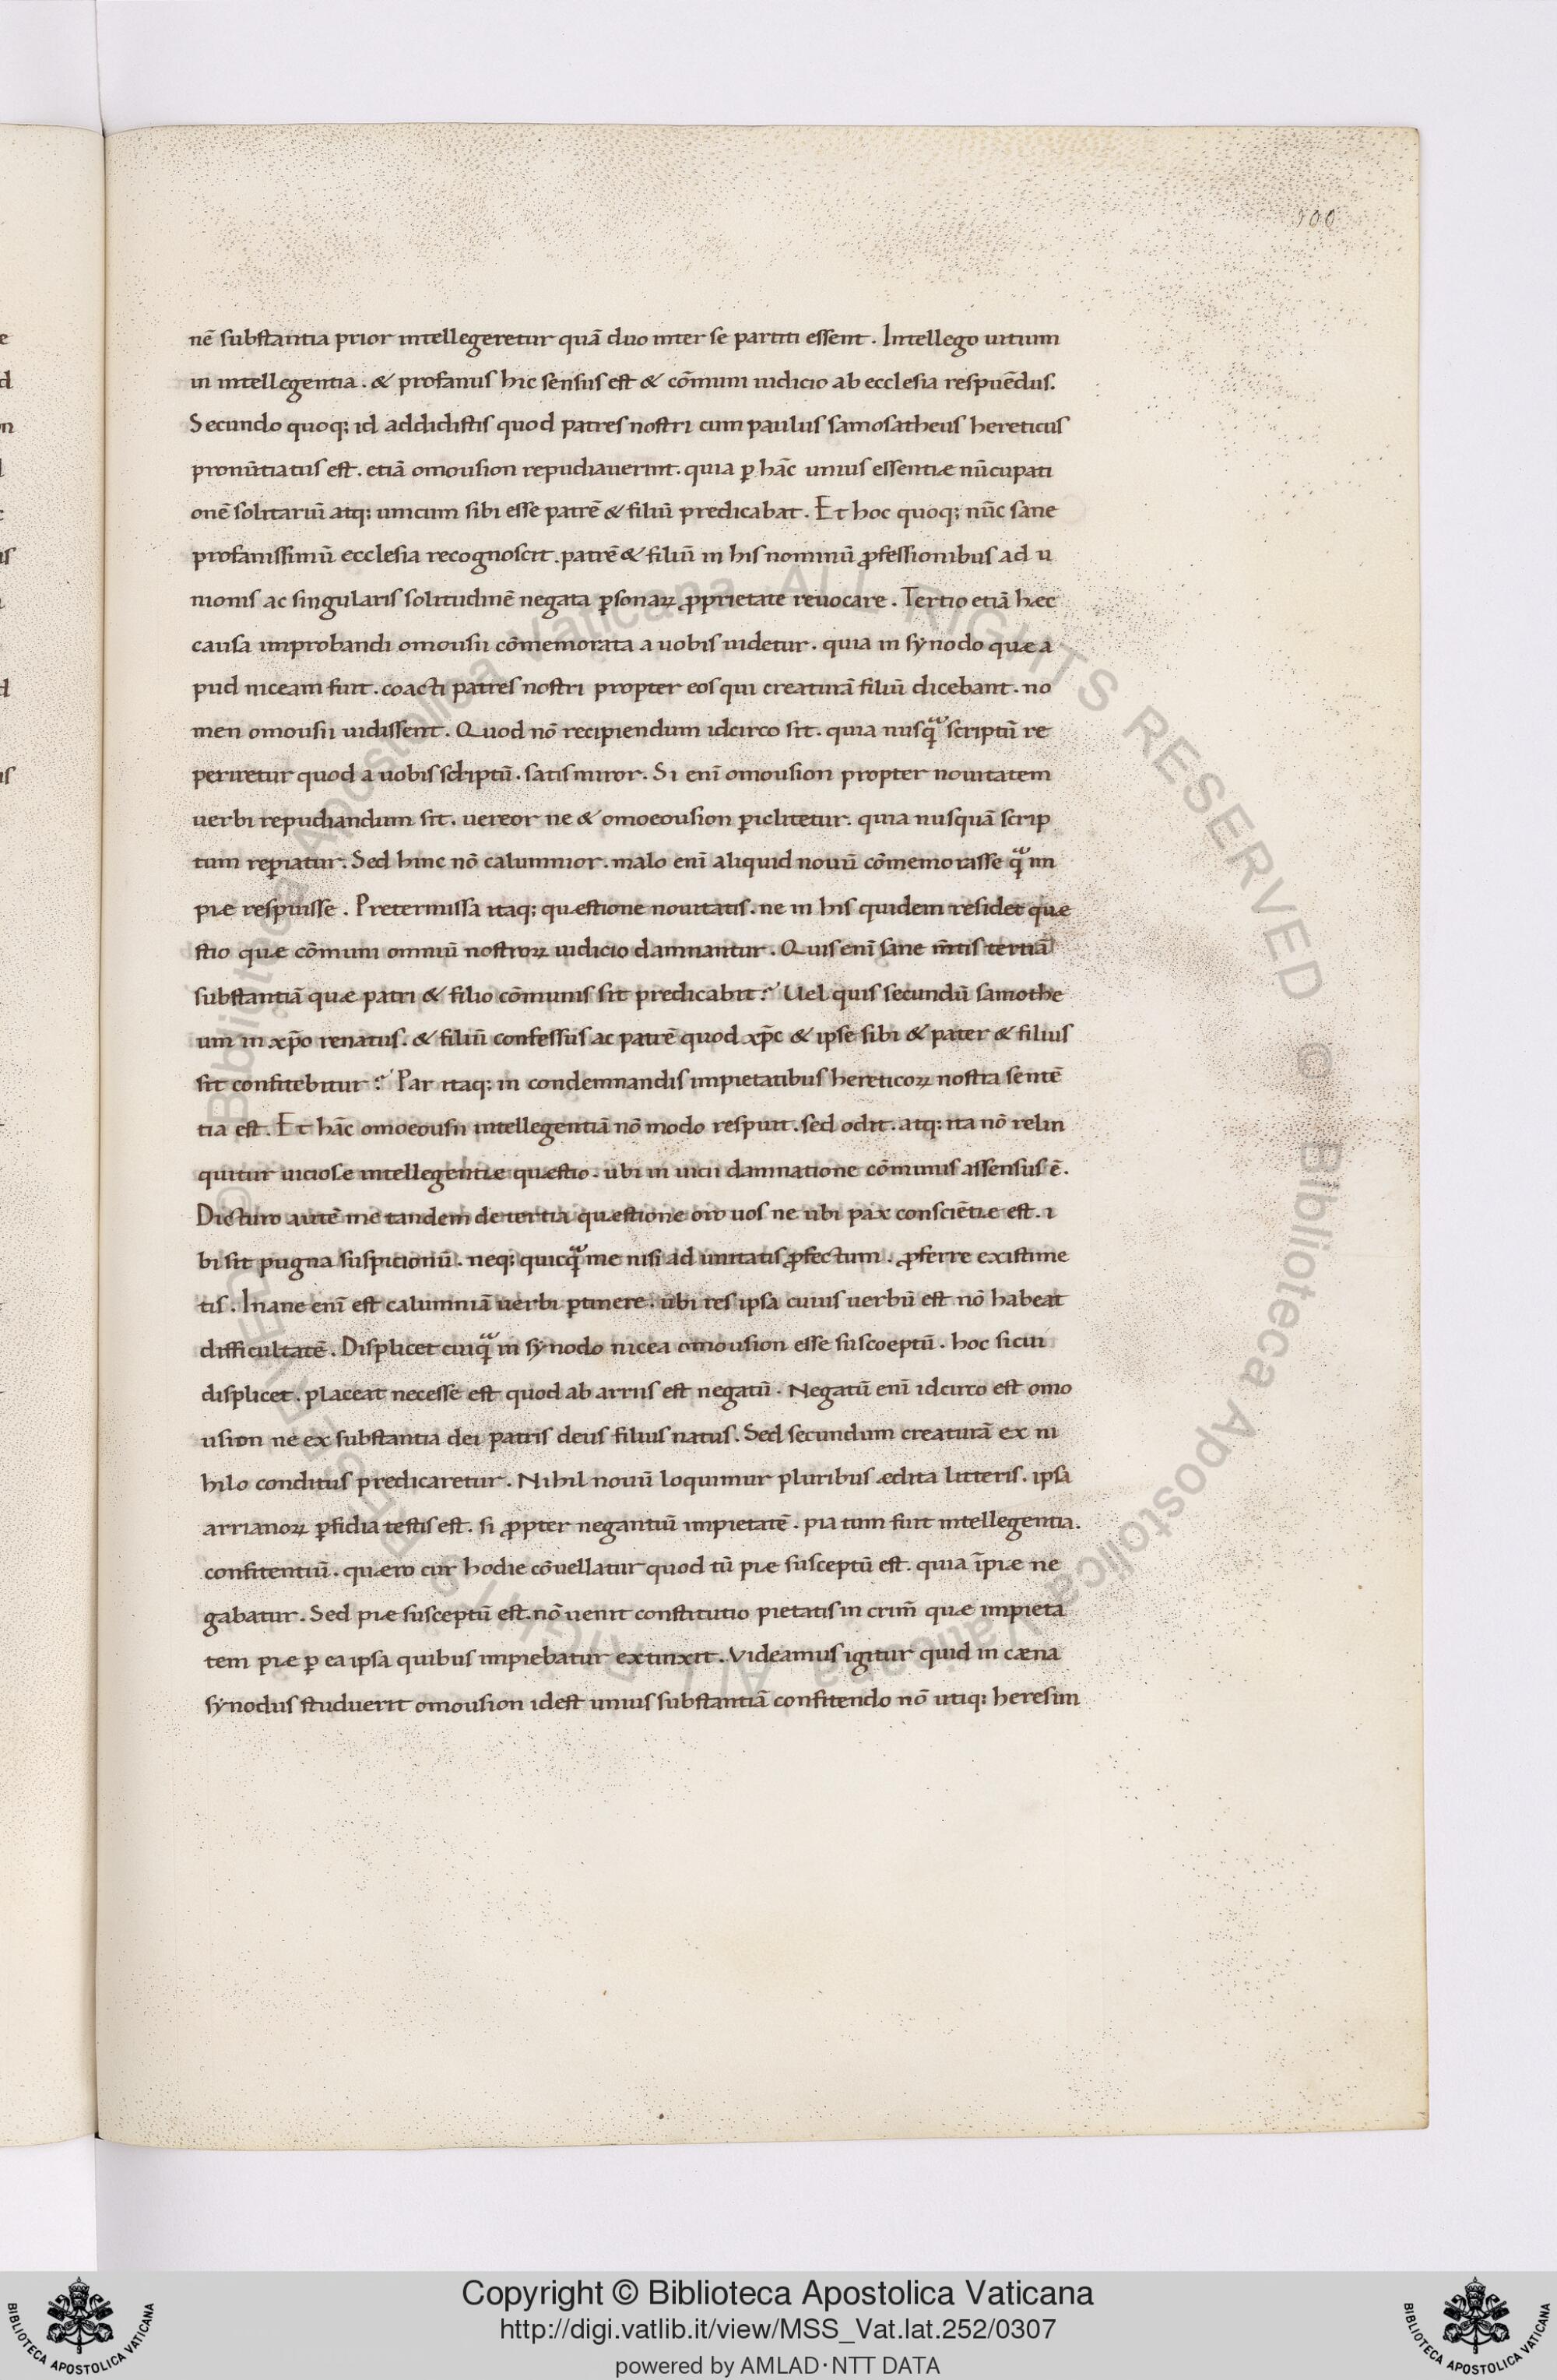 100
nē substantia prior intellegeretur quā duo inter se partiti essent. Intellego uitium
in intellegentia. & profanus hic sensus est & cōmuni iudicio ab ecclesia respuēdus.
Secundo quoq; id addidistis quod patres nostri cum paulus samosatheus hereticus
pronūtiatus est. etiā omousion repudiauerint. quia ꝑ hāc unius essentiæ nūcupati
onē solitariū atq; unicum sibi esse patrē & filiū predicabat. Et hoc quoq; nūc sane
profanissimū ecclesia recognoscit. patrē & filiū in his nominū ꝓfessionibus ad u
nionis ac singularis solitudinē negata ꝑsonaꝝ ꝓprietate reuocare. Tertio etiā hæc
causa improbandi omousii cōmemorata a uobis uidetur. quia in synodo quæ a
pud niceam fuit. coacti patres nostri propter eos qui creaturā filiū dicebant. no
men omousii uidissent. Quod nō recipiendum idcirco sit. quia nusqᵃ scriptū re
periretur quod a uobis scriptū. satis miror. Si enī omousion propter nouitatem
uerbi repudiandum sit. uereor ne & omoeousion ꝑiclitetur. quia nusquā scrip
tum reꝑiatur. Sed hinc nō calumnior. malo enī aliquid nouū cōmemorasse qᵃ im
piæ respuisse. Pretermissa itaq; quæstione nouitatis. ne in his quidem residet quæ
stio quæ cōmuni omniū nostroꝝ iudicio damnantur. Quis enī sane m̄tis tertiā
substantiā quæ patri & filio cōmunis sit predicabit? Uel quis secundū samothe
um in xp̄o renatus. & filiū confessus ac patrē quod xp̄c & ipse sibi & pater & filius
sit confitebitur? Par itaq; in condemnandis impietatibus hereticoꝝ nostra sentē
tia est. Et hāc omoeousii intellegentiā nō modo respuit. sed odit. atq; ita nō relin
quitur uiciosæ intellegentiæ quæstio. ubi in uicii damnatione cōmunis assensus ē.
Dicturo autē me tandem de tertia quæstione oro uos ne ubi pax consciētiæ est. i
bi sit pugna suspicionū. neq; quicqᵃ me nisi ad unitatis ꝓfectum. ꝓferre existime
tis. Inane enī est calumniā uerbi ꝑtinere. ubi res ipsa cuius uerbū est nō habeat
difficultatē. Displicet cuiqᵃ in synodo nicea omousion esse suscoeptū. hoc si cui
displicet. placeat necesse est quod ab arriis est negatū. Negatū enī idcirco est omo
usion ne ex substantia dei patris deus filius natus. Sed secundum creaturā ex ni
hilo conditus predicaretur. Nihil nouū loquimur pluribus ædita litteris. ipsa
arrianoꝝ ꝑfidia testis est. si ꝓpter negantiū impietatē. pia tum fuit intellegentia.
confitentiū. quæro cur hodie cōuellatur quod tū piæ susceptū est. quia īpiæ ne
gabatur. Sed piæ susceptū est. nō uenit constitutio pietatis in crim̄ quæ impieta
tem piæ ꝑ ea ipsa quibus impiebatur extinxit. Videamus igitur quid in cæna
synodus studuerit omousion idest unius substantiā confitendo nō utiq; heresim
© Biblioteca Apostolica Vaticana ALL RIGHTS RESERVED © Biblioteca Apostolica Vaticana ALL RIGHTS RESERVED
Copyright © Biblioteca Apostolica Vaticana
http://digi.vatlib.it/view/MSS_Vat.lat.252/0307
powered by AMLAD·NTT DATA
BIBLIOTECA APOSTOLICA VATICANA
BIBLIOTECA APOSTOLICA VATICANA